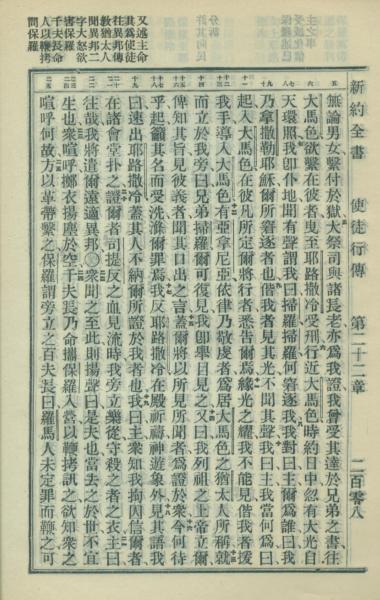 新約全書 使徒行傳 第二十二章 二百零八
無論男女繫付於獄大祭司與諸長老亦爲我證我曾受其達於兄弟之書往
大馬色欲繫在彼者曳至耶路撒冷受刑行近大馬色時約日中忽有大光自
天環照我卽仆地聞有聲謂我曰掃羅掃羅何窘逐我我對曰主爾爲誰曰我
乃拿撒勒耶穌爾所窘逐者也偕我者見其光不聞其聲我曰主我當何爲曰
起入大馬色在彼凡所定爾將行者悉告爾焉緣光之耀我不能見偕我者援
我手導入大馬色有亞拿尼亞依律乃敬虔者爲居大馬色之猶太人所稱就
而立於我旁曰兄弟掃羅爾可復見我卽舉目見之又曰我列祖之上帝立爾
俾知其旨見彼義者聞其口出之言蓋爾將以所見所聞者爲證於衆今何待
乎起籲其名而受洗滌爾罪焉我反耶路撒冷在殿祈禱神遊象外見其語我
曰速出耶路撒冷蓋其人不納爾所證於我者也我曰主衆知我拘囚信爾者
在諸會堂扑之證爾者司提反之血見流時我旁立樂從守殺之者之衣主曰
往哉我將遣爾遠適異邦〇衆聞之至此則揚聲曰是夫也當去之於世不宜
生也衆喧呼擲衣揚塵於空千夫長乃命攜保羅入營以鞭拷訊之欲知衆之
喧呼何故方以革帶繫之保羅謂旁立之百夫長曰羅馬人未定罪而鞭之可
又述主命
其爲使徒
往異邦傳
敎猶太人
聞異邦二
字大怒欲
害保羅
千夫長命
人以鞭拷
問保羅